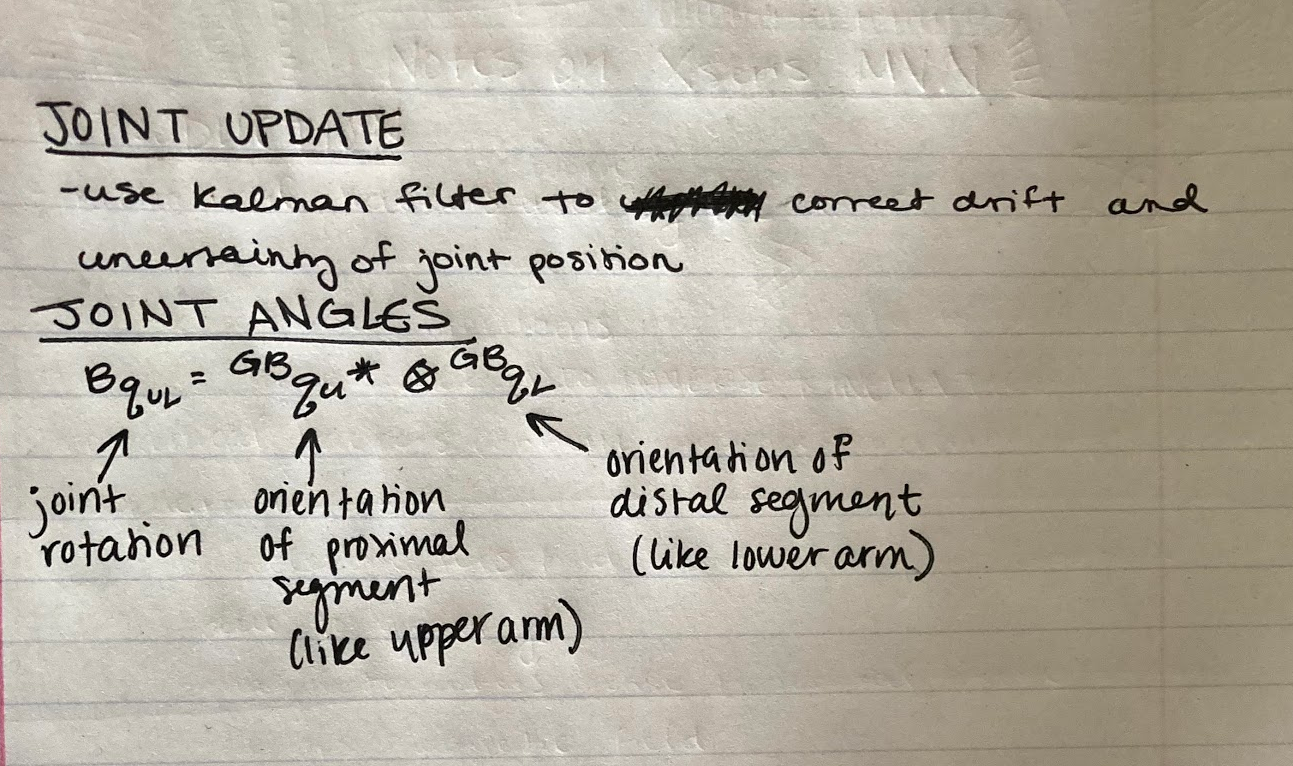 Notes on Xsens MVN
JOINT UPDATE
-use Kalman filter to correct drift and
uncertainty of joint position
JOINT ANGLES
Bq_UL = GBq_U* ⊗ GBq_L
joint
rotation
orientation
of proximal
segment
(like upper arm)
orientation of
distal segment
(like lower arm)